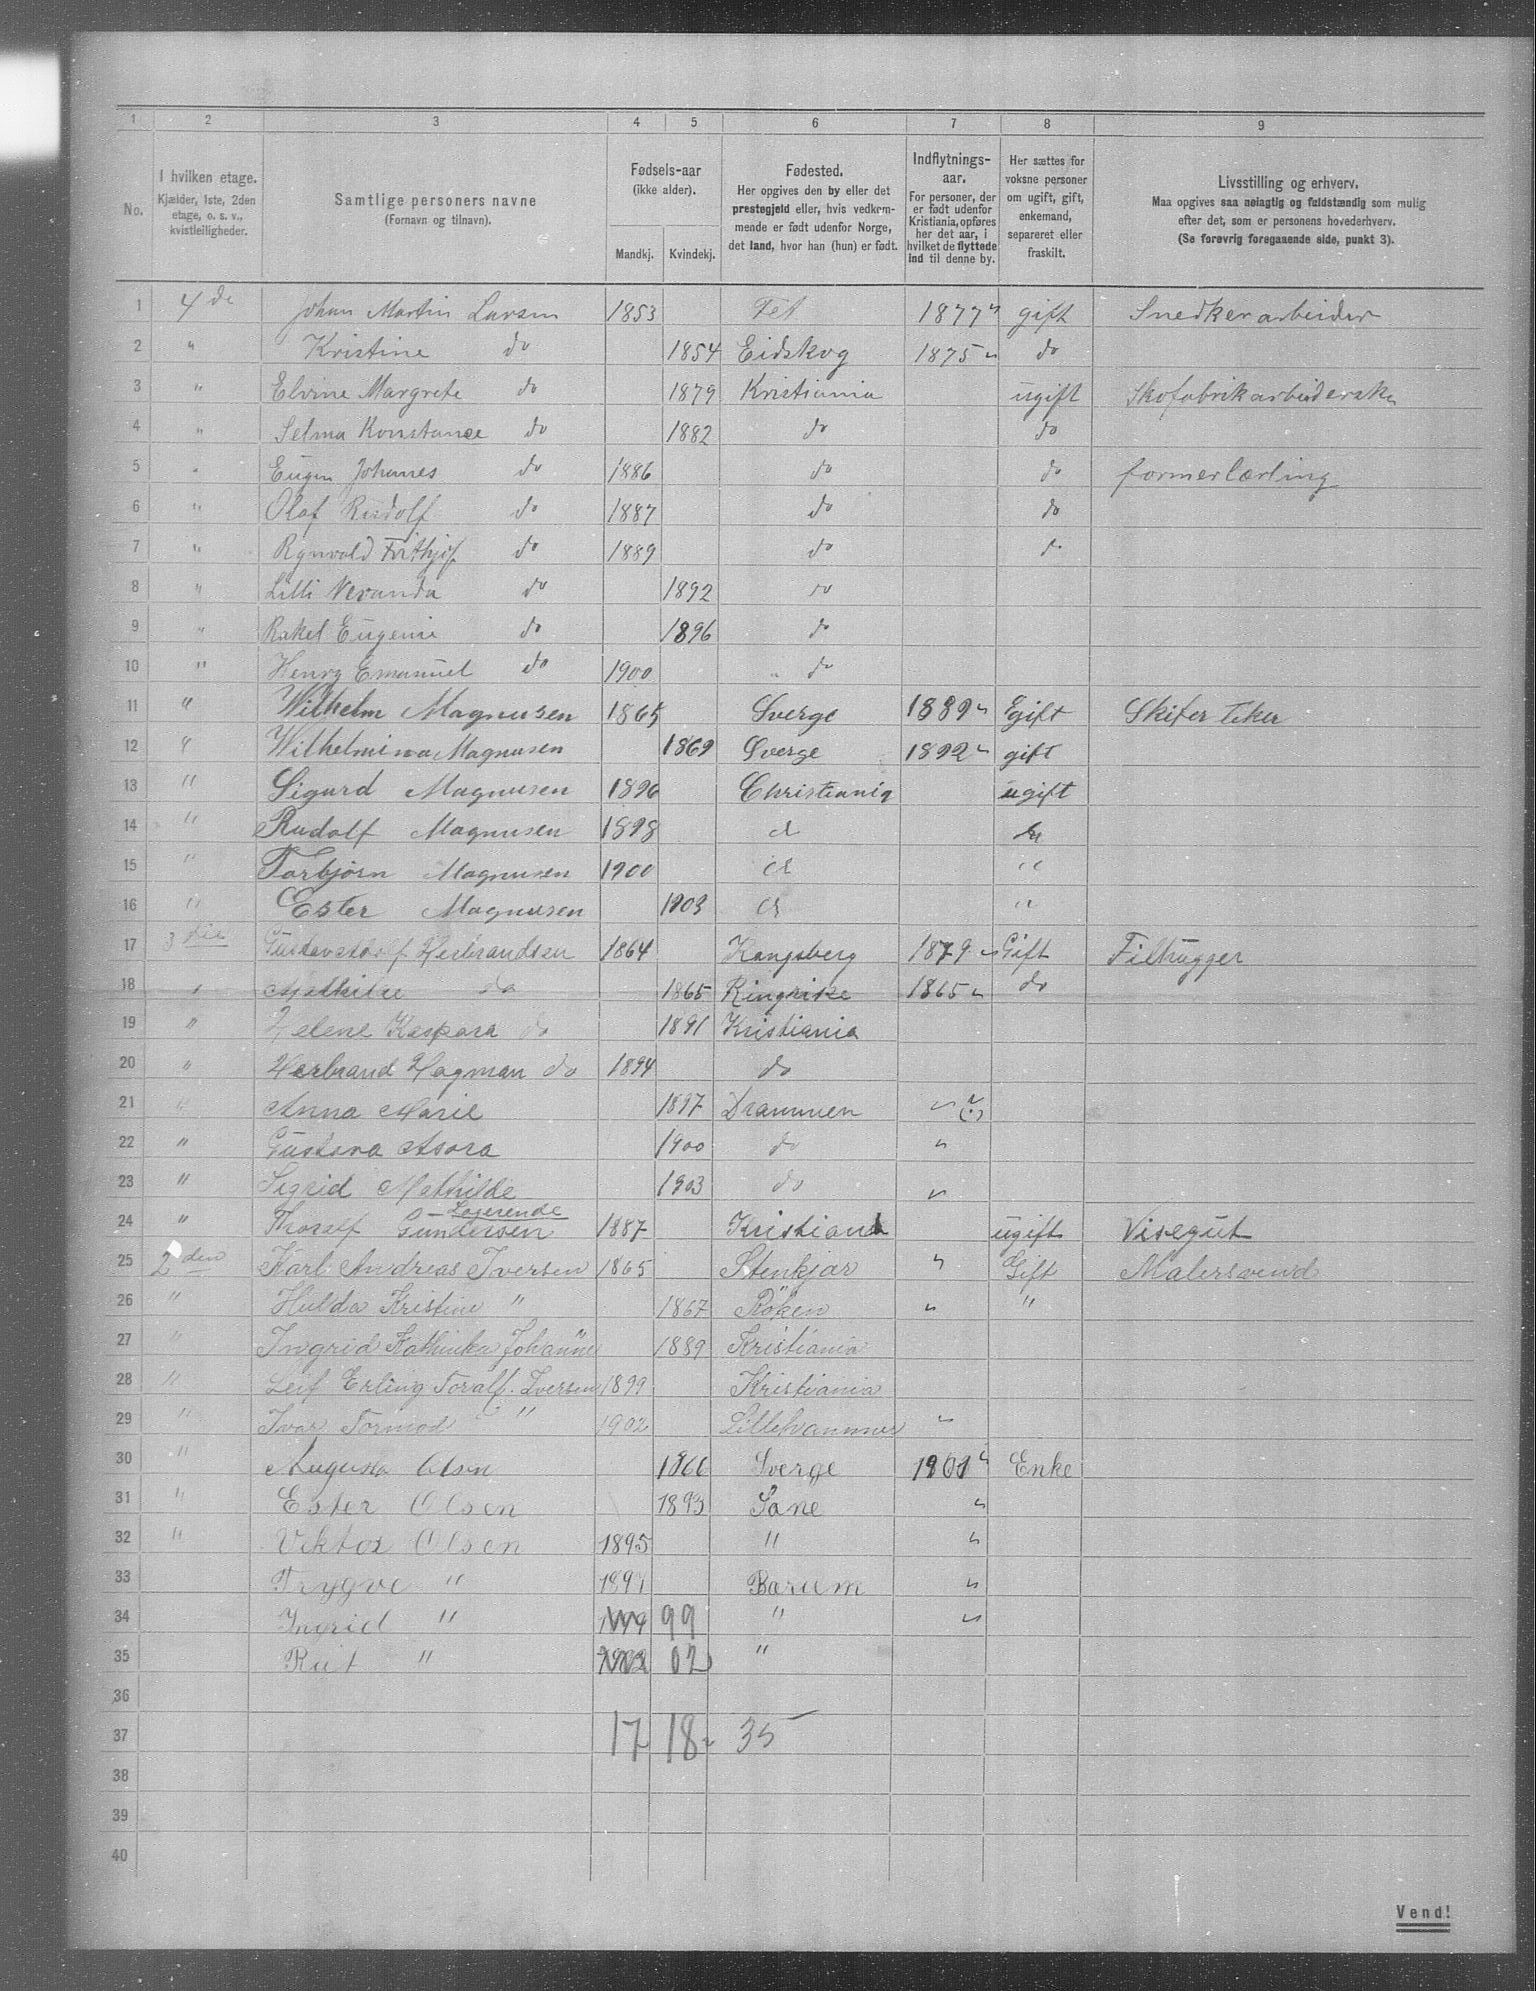 1 2 3 4 5 6 7 8 9
No.
I hvilken etage.
Kjælder, 1ste, 2den
etage, o. s. v.,
kvistleiligheder.
Samtlige personers navne
(Fornavn og tilnavn).
Fødsels-aar
(ikke alder).
Mandkj. Kvindekj.
Fødested.
Her opgives den by eller det
prestegjeld eller, hvis vedkom-
mende er født udenfor Norge,
det land, hvor han (hun) er født.
Indflytnings-
aar.
For personer, der
er født udenfor
Kristiania, opføres
her det aar, i
hvilket de flyttede
ind til denne by.
Her sættes for
voksne personer
om ugift, gift,
enkemand,
separeret eller
fraskilt.
Livsstilling og erhverv.
Maa opgives saa nøiagtig og fuldstændig som mulig
efter det, som er personens hovederhverv.
(Se forøvrig foregaaende side, punkt 3).
1 4 de Johan Martin Larsen 1853 Fet 1877 gift Snedkerarbeider
2 " Kristine do 1854 Eidskog 1875 do
3 " Elvine Margrete do 1879 Kristiania ugift Skofabrikarbeiderske
4 " Selma Konstance do 1882 do do
5 " Eugen Johanes do 1886 do do formerlærling
6 " Olaf Rudolf do 1887 do do
7 " Rgnvald Frithjof do 1889 do do
8 " Lilli Veranda do 1892 do
9 " Rakel Eugenie do 1896 do
10 " Henry Emanuel do 1900 " do
11 " Wilhelm Magnusen 1865 Sverge 1889 Egift Skifer teker
12 " Wilhelmina Magnusen 1869 Sverge 1892 gift
13 " Sigurd Magnusen 1896 Christiania ugift
14 " Rudolf Magnusen 1898 d
15 " Torbjørn Magnusen 1900 d "
16 " Ester Magnusen 1903 d "
17 3 die Gustav Herbrandsen 1864 Kongsberg 1879 Gift Filhugger
18 " Mathilde do 1865 Ringrike 1865 do
19 " Helene Kaspara do 1891 Kristiania
20 " Herbrand Hagman do 1894 do
21 " Anna Marie 1897 Drammen (?)
22 " Gustava Asora 1900 do "
23 " Sigrid Mathilde 1903 do
Logerende
24 " Thoralf Gundersen 1887 Kristiania ugift Visegut
25 2 den Karl Andreas Iversen 1865 Stenkjær Gift Malersvend
26 " Hulda Kristine " 1867 Röken "
27 " Ingrid Kathinka Johanne 1889 Kristiania
28 " Leif Erling Toralf. Iversen 1899 Kristiania
29 " Ivar Tormod " 1902 Lillehammer
30 " Augusta Olsen 1866 Sverge 1901 Enke
31 " Ester Olsen 1893 Sane
32 " Viktor Olsen 1895 "
33 Trygve " 1897 Barum
34 Ingrid " 99 "
35 Rut " 02 "
36
37 17 18 35
38
39
40
Vend!